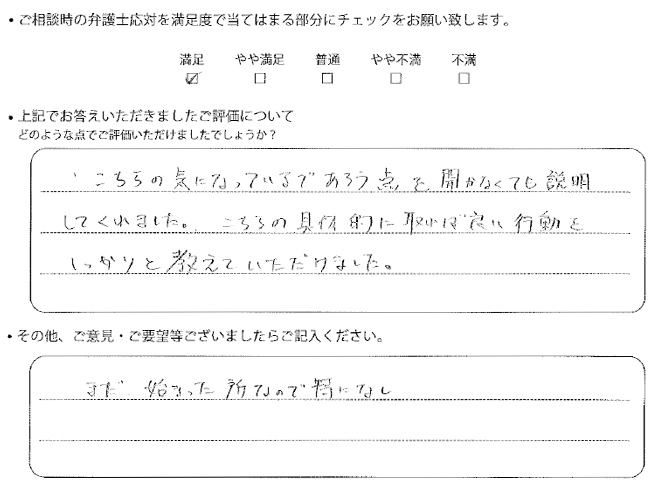 • ご相談時の弁護士応対を満足度で当てはまる部分にチェックをお願い致します。
満足 やや満足 普通 やや不満 不満
☑ □ □ □ □
• 上記でお答えいただきましたご評価について
どのような点でご評価いただけましたでしょうか？
・こちらの気になっているであろう点を聞かなくても説明
してくれました。こちらの具体的に取れば良い行動を
しっかりと教えていただけました。
• その他、ご意見・ご要望等ございましたらご記入ください。
まだ始まった所なので特になし